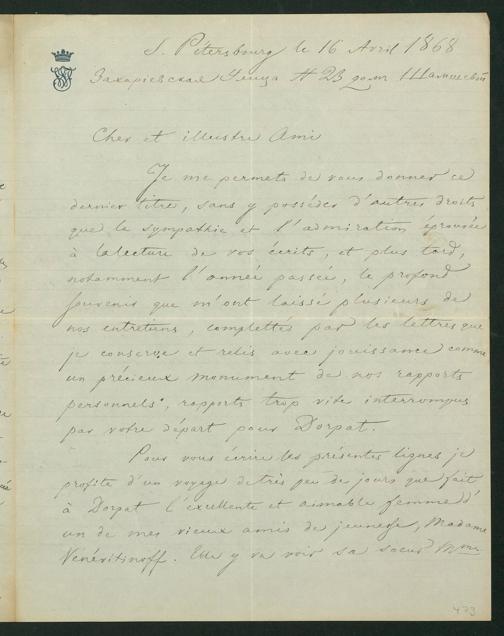 S. Pétersbourg le 16 Avril 1868
Захарьевская Улица № 23 домъ
Cher et illustre Ami
Je me permets de vous donner ce
dernier titre, sans y posséder d'autres droits
que la sympathie et l'admiration éprouvée
à la lecture de vos écrits, et plus tard,
notamment l'année passée, le profond
souvenir que m'ont laissé plusieurs de
nos entretiens, complettés par les lettres que
je conserve et relis avec jouissance comme
un précieux monument de nos rapports
personnels, rapports trop vite interrompus
par votre départ pour Dorpat.
Pour vous écrire les présentes lignes je
profite d'un voyage de très peu de jours que fait
à Dorpat l'exellente et aimable femme d'
un de mes vieux amis de jeunesse, Madame
Vénévitinoff. Elle y va voir sa soeur Mme
473